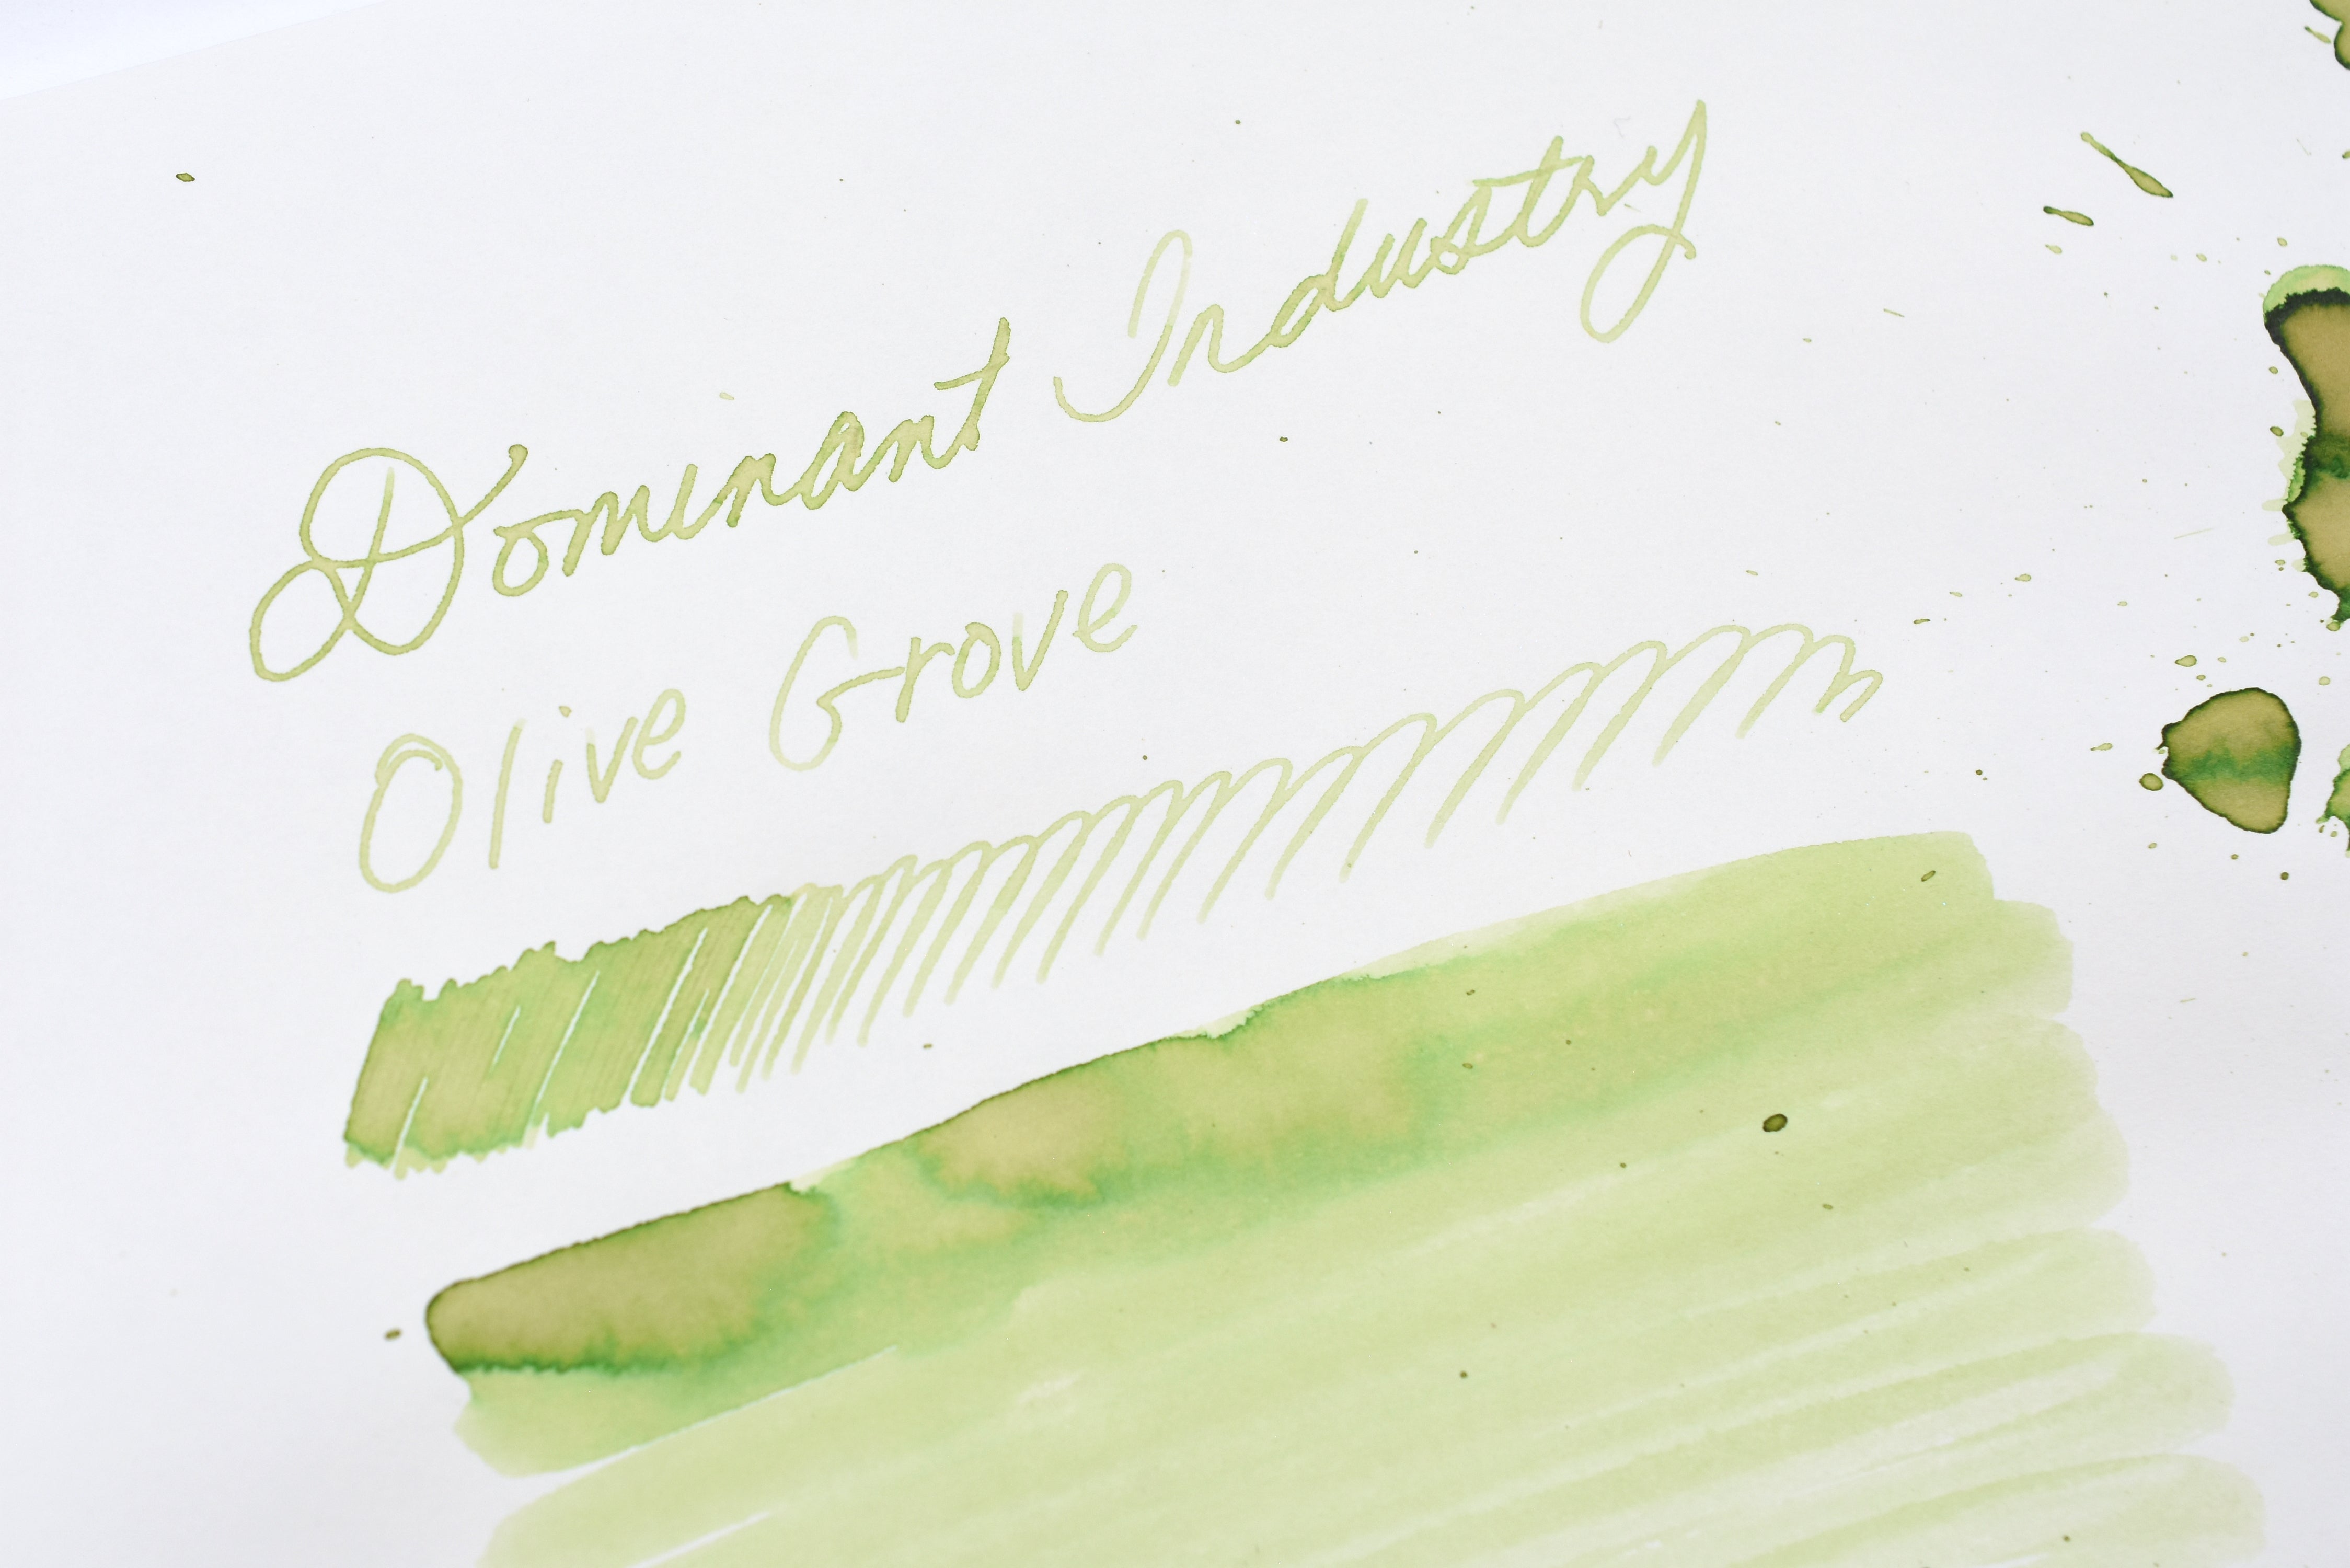 Dominant Industry
Olive Grove